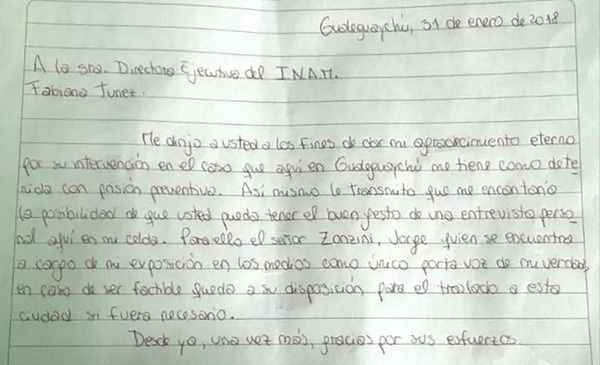 Gualeguaychú, 31 de enero de 2018
A la sra. Directora Ejecutiva del I.N.A.M.
Fabiana Tunez.
Me dirijo a usted a los fines de dar mi agradecimiento eterno
por su intervención en el caso que aquí en Gualeguaychú me tiene como dete-
nida con prisión preventiva. Así mismo le transmito que me encantaría
la posibilidad de que usted pueda tener el buen gesto de una entrevista perso-
nal aquí en mi celda. Para ello el señor Zonzini, Jorge quien se encuentra
a cargo de mi exposición en los medios como único porta voz de mi verdad,
en caso de ser factible queda a su disposición para el traslado a esta
ciudad si fuera necesario.
Desde ya, una vez más, gracias por sus esfuerzos.